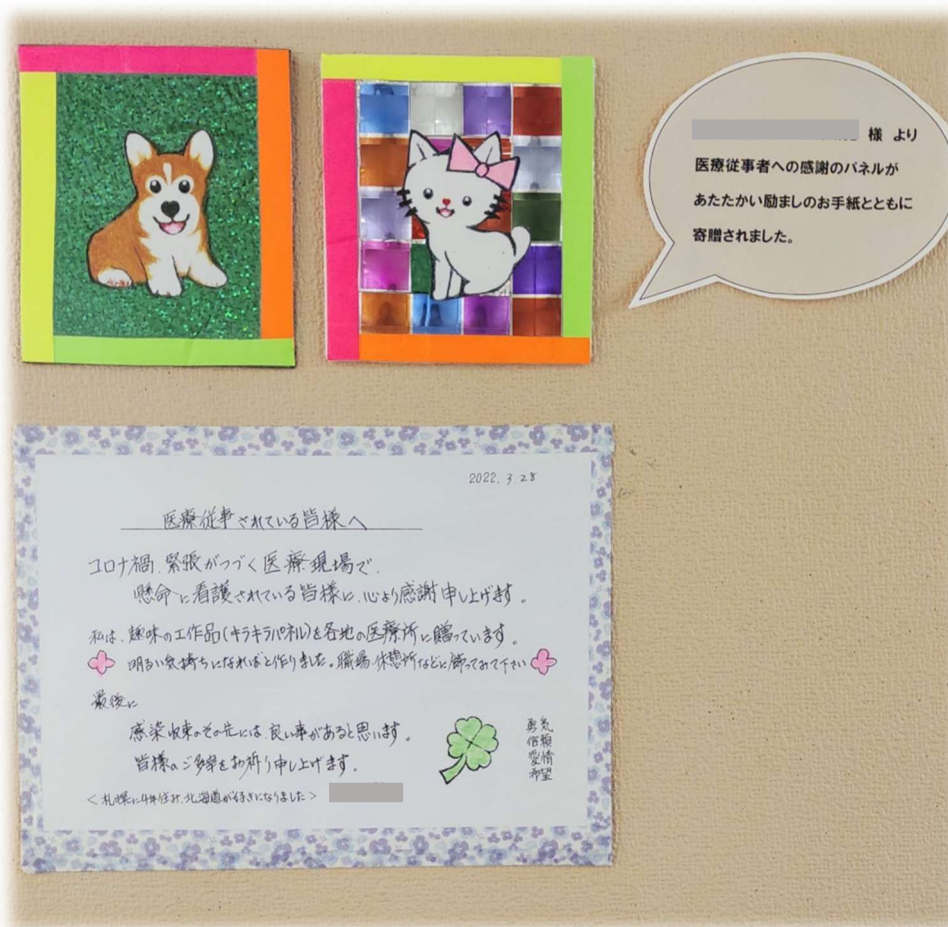 様 より
医療従事者への感謝のパネルが
あたたかい励ましのお手紙とともに
寄贈されました。
2022. 3 28
医療従事されている皆様へ
コロナ禍、緊張がつづく医療現場で、
懸命に看護されている皆様に、心より感謝申し上げます。
私は、趣味の工作品(キラキラパネル)を各地の医療所に贈っています。
明るい気持ちになればと作りました。職場、休憩所などに飾ってみて下さい
最後に
感染収束のその先には、良い事があると思います。
皆様のご多幸をお祈り申し上げます。
<札幌に4年住み、北海道が好きになりました>
勇気
信頼
愛情
希望